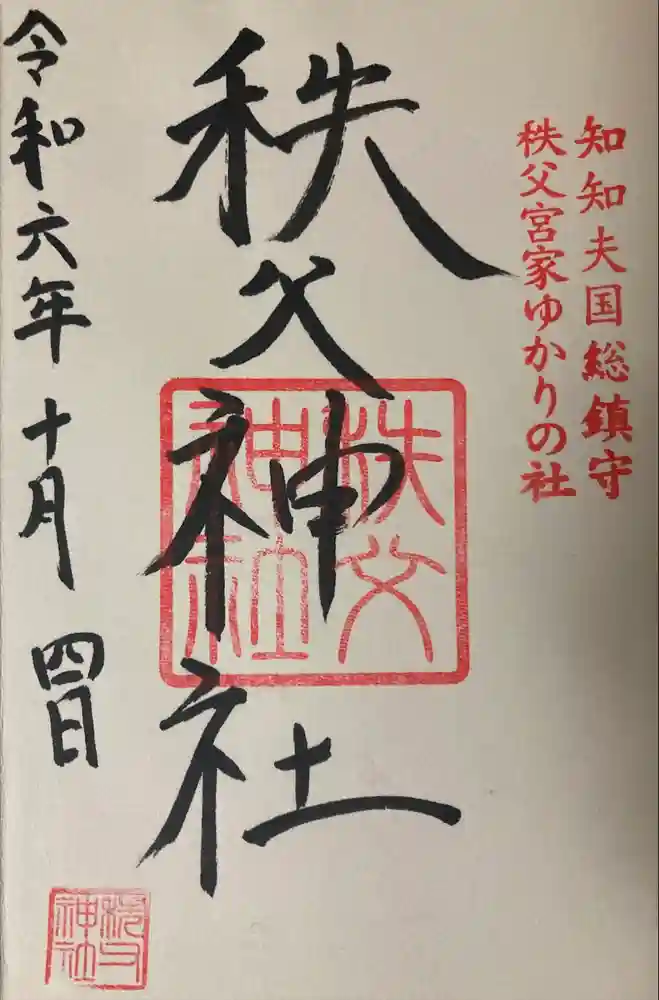 知知夫国総鎮守
秩父宮家ゆかりの社
秩父神社
秩父
神社
令和六年 十月 四日
秩父
神社